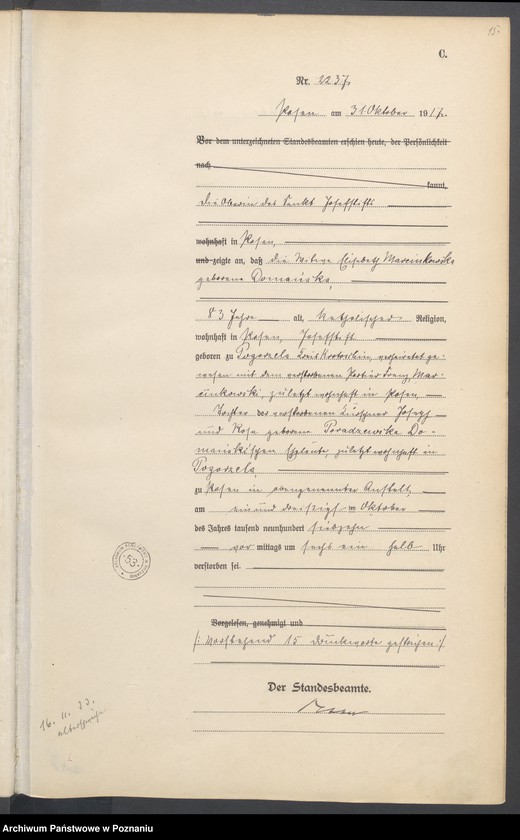 15.
C.
Nr. 2237
Posen am 31 Oktober 1917.
Vor dem unterzeichneten Standesbeamten erschien heute, der Persönlichkeit
nach
kannt,
die Oberin des Sankt Josefstifts
wohnhaft in Posen,
und zeigte an, daß die Witwe Elisabeth Marcinkowska
geborene Domańska,
83 Jahre alt, katholischer Religion,
wohnhaft in Posen, Josefstift
geboren zu Pogorzela Kreis Krotoschin, verheiratet ge-
wesen mit dem verstorbenen Portier Franz Mar-
cinkowski, zuletzt wohnhaft in Posen,
Tochter der verstorbenen Kürschner Joseph
und Rosa geborene Poradzewska Do-
mańskischen Eheleute, zuletzt wohnhaft in
Pogorzela,
zu Posen in obengenannter Anstalt,
am einunddreißigsten Oktober
des Jahres tausend neunhundert siebzehn
vor mittags um sechs ein halb Uhr
verstorben sei.
Vorgelesen, genehmigt und
/: Vorstehend 15 Druckworte gestrichen :/
Der Standesbeamte.
53
16. 11. 33.
Archiwum Państwowe w Poznaniu